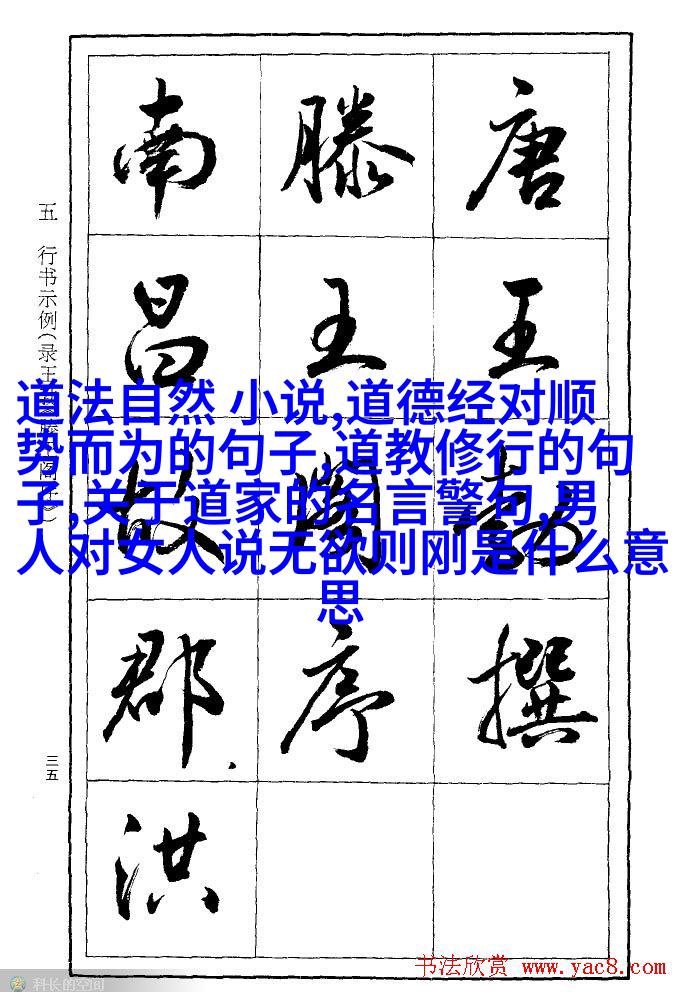 唐王勃撰
滕王阁序
南昌故郡洪
五 行书示例(录王勃滕王阁序)
三五
道法自然 小说,道德经对顺
势而为的句子,道教修行的句
子,关于道家的名言警句,男
人对女人说无欲则刚是什么意
思
书法欣赏 www.yac8.com
科长的空间